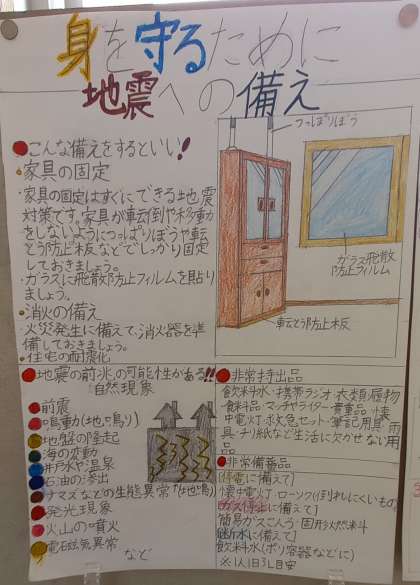 身を守るために
地震への備え
こんな備えをするといい!
・家具の固定
・家具の固定はすぐにできる地震
対策です。家具が転倒や移動
をしないようにつっぱりぼうや転
とう防止板などでしっかり固定
しておきましょう。
・ガラスに飛散防止フィルムを貼り
ましょう。
・消火の備え
・火災発生に備えて、消火器を準
備しておきましょう。
・住宅の耐震化
つっぱりぼう
ガラス飛散
防止フィルム
転とう防止板
地震の前兆の可能性がある!!
自然現象
前震
鳴動(地鳴り)
地盤の隆起
海の変動
井戸水や温泉
石油の滲出
ナマズなどの生態異常
「地鳴」
発光現象
火山の噴火
電磁気異常
など
非常持出品
飲料水・携帯ラジオ・衣類履物
食料品・マッチやライター・貴重品・懐
中電灯・救急セット・筆記用具・雨
具・チリ紙など生活に欠かせない用
品
非常備蓄品
停電に備えて]
懐中電灯・ローソク(倒れにくいもの)
ガス停止に備えて]
簡易ガスこんろ・固形燃料
断水に備えて]
飲料水(ポリ容器などに)
※1人1日3L目安